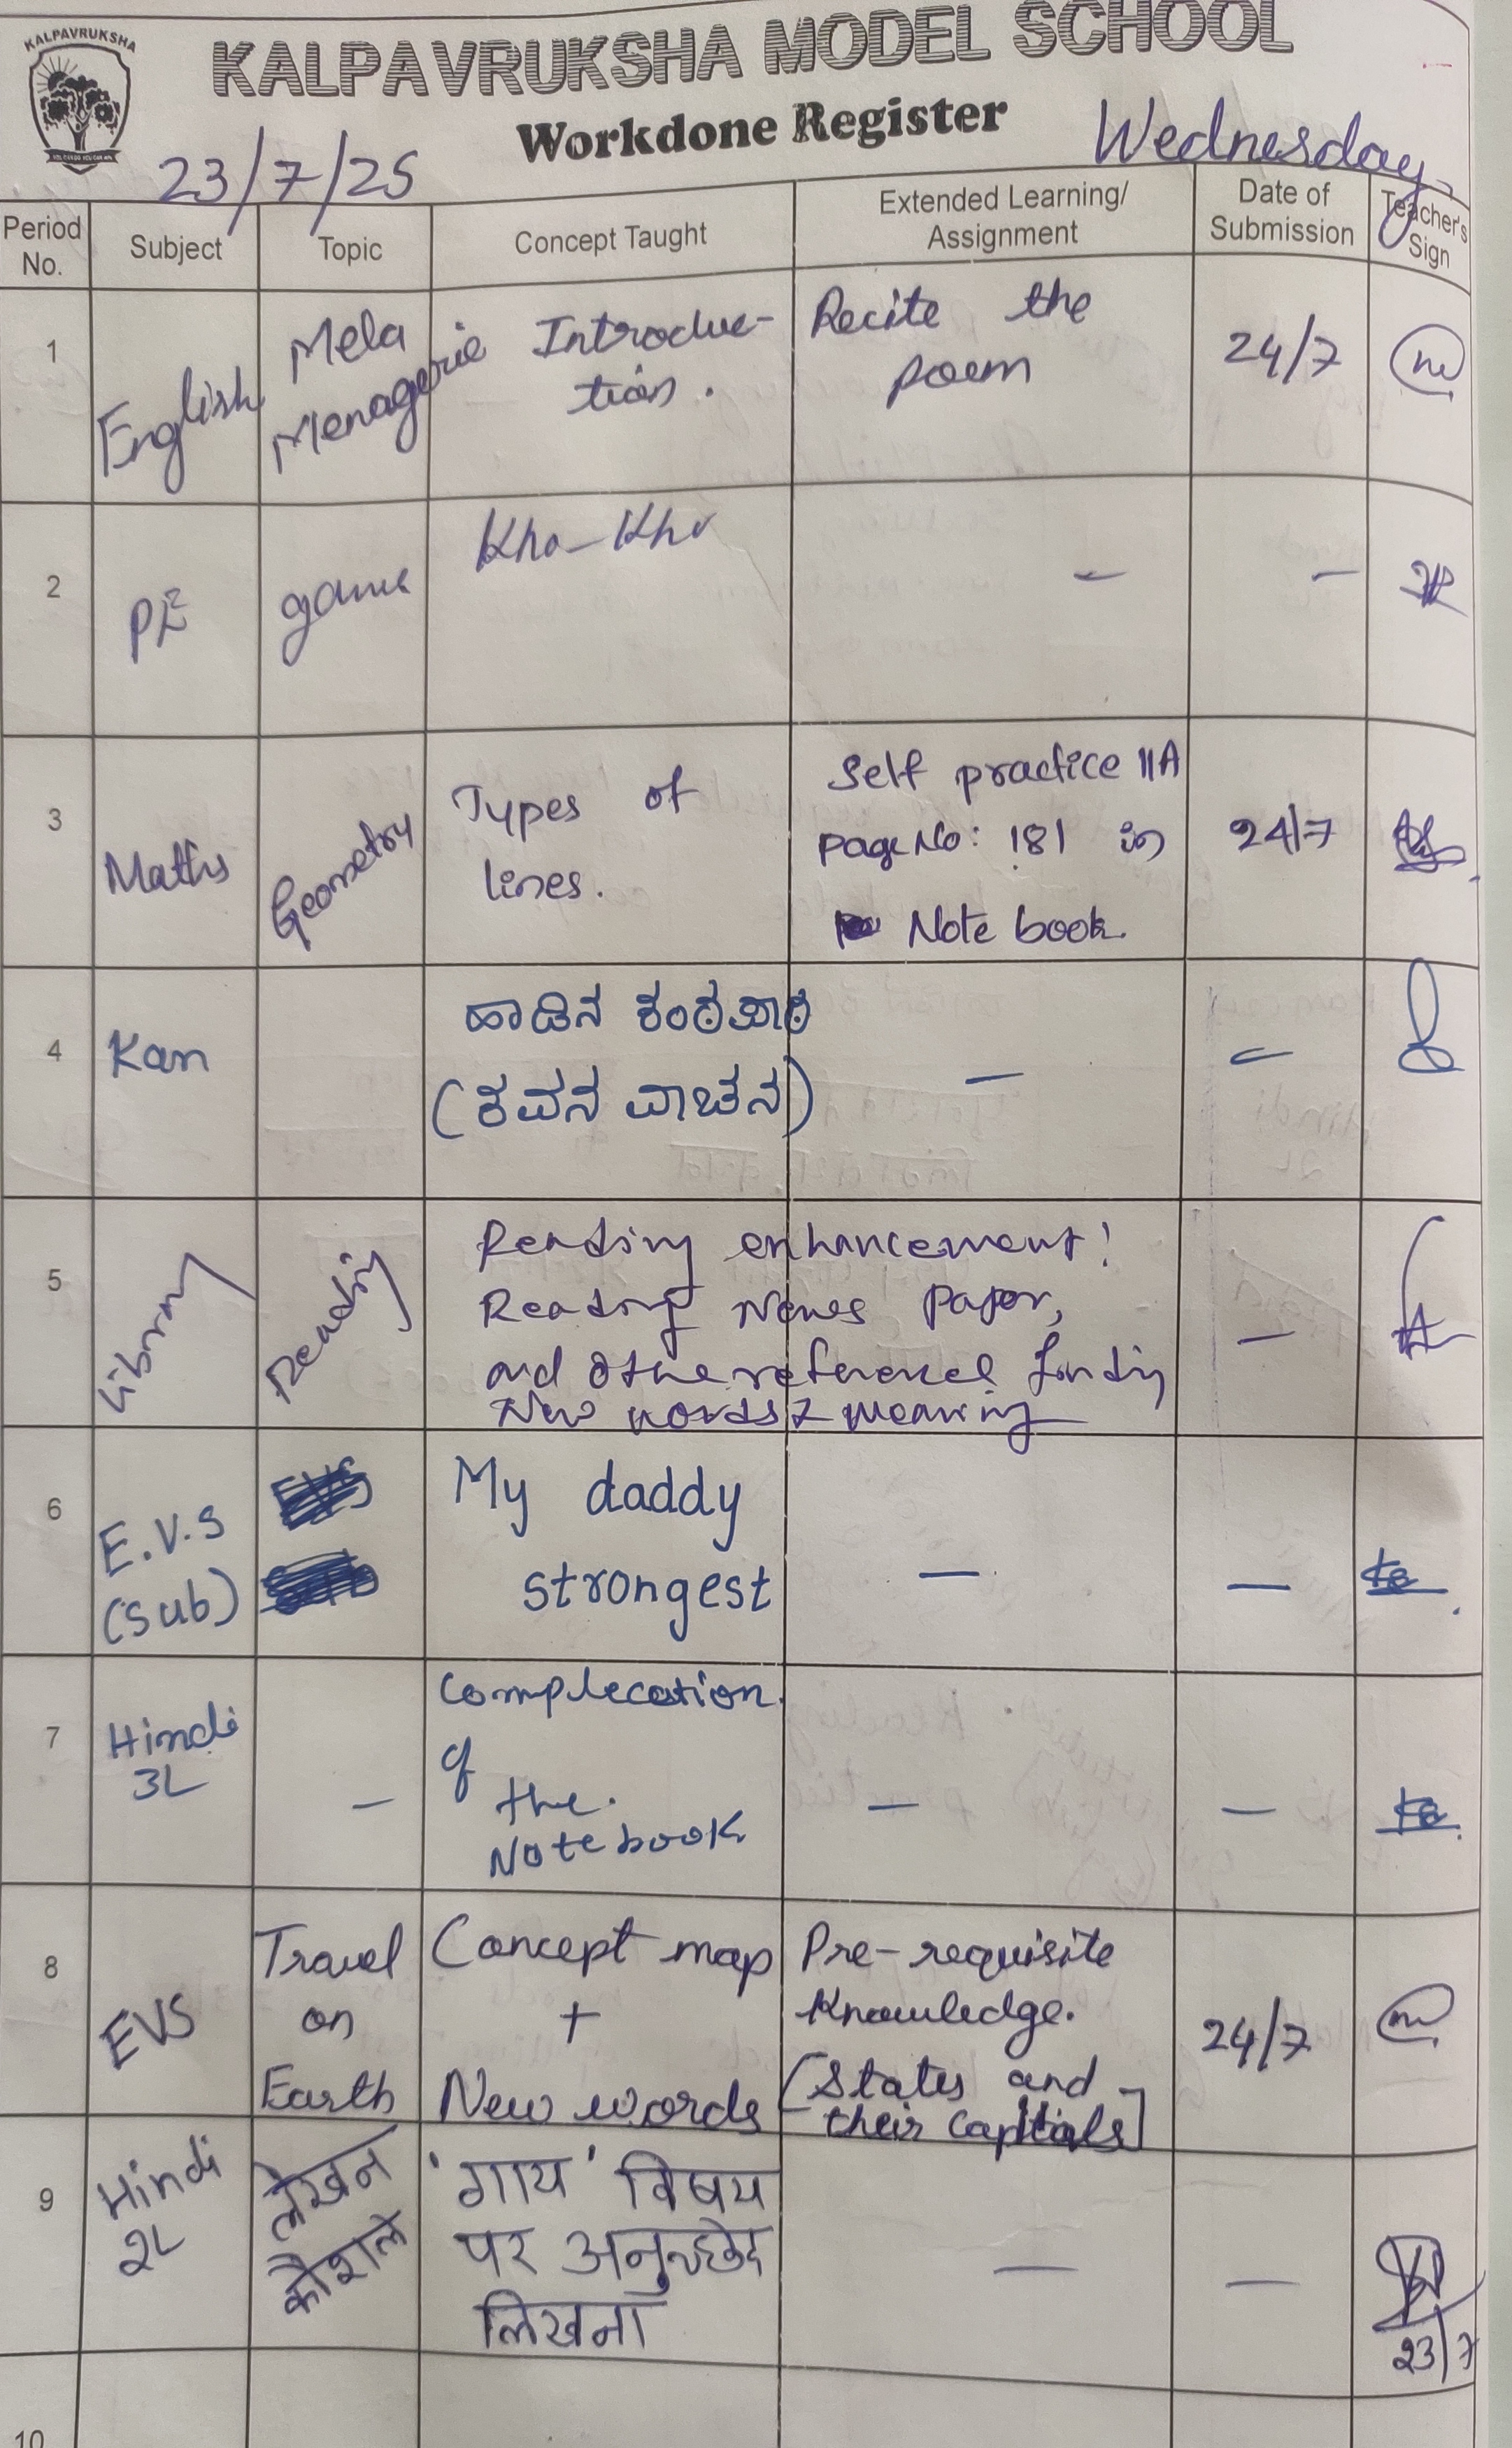 KALPAVRUKSHA
KALPAVRUKSHA MODEL SCHOOL
Workdone Register
23/7/25
Wednesday
Period No.
Subject
Topic
Concept Taught
Extended Learning/
Assignment
Date of
Submission
Teacher's
Sign
1
English
Mela
Menagerie
Introduc-
tion.
Recite the
poem
24/7
2
PE
game
Kho-Kho
–
–
3
Maths
Geometry
Types of
lines.
Self practice 11A
Page No: 181 in
Note book.
24/7
4
Kan
ಹಾಡಿನ ಕಂಠಪಾಠ
(ಕವನ ವಾಚನ)
–
–
5
Library
Reading
Reading enhancement!
Reading News paper,
and other reference finding
New words & meaning
–
6
E.V.S
(Sub)
My daddy
strongest
–
–
7
Hindi
3L
–
Complecation
of
the.
Notebook
–
–
8
EVS
Travel
on
Earth
Concept map
+
New words
Pre-requisite
Knowledge.
[States and
their capitials]
24/7
9
Hindi
2L
लेखन
कौशल
'गाय' विषय
पर अनुच्छेद
लिखना
–
–
23/7
10